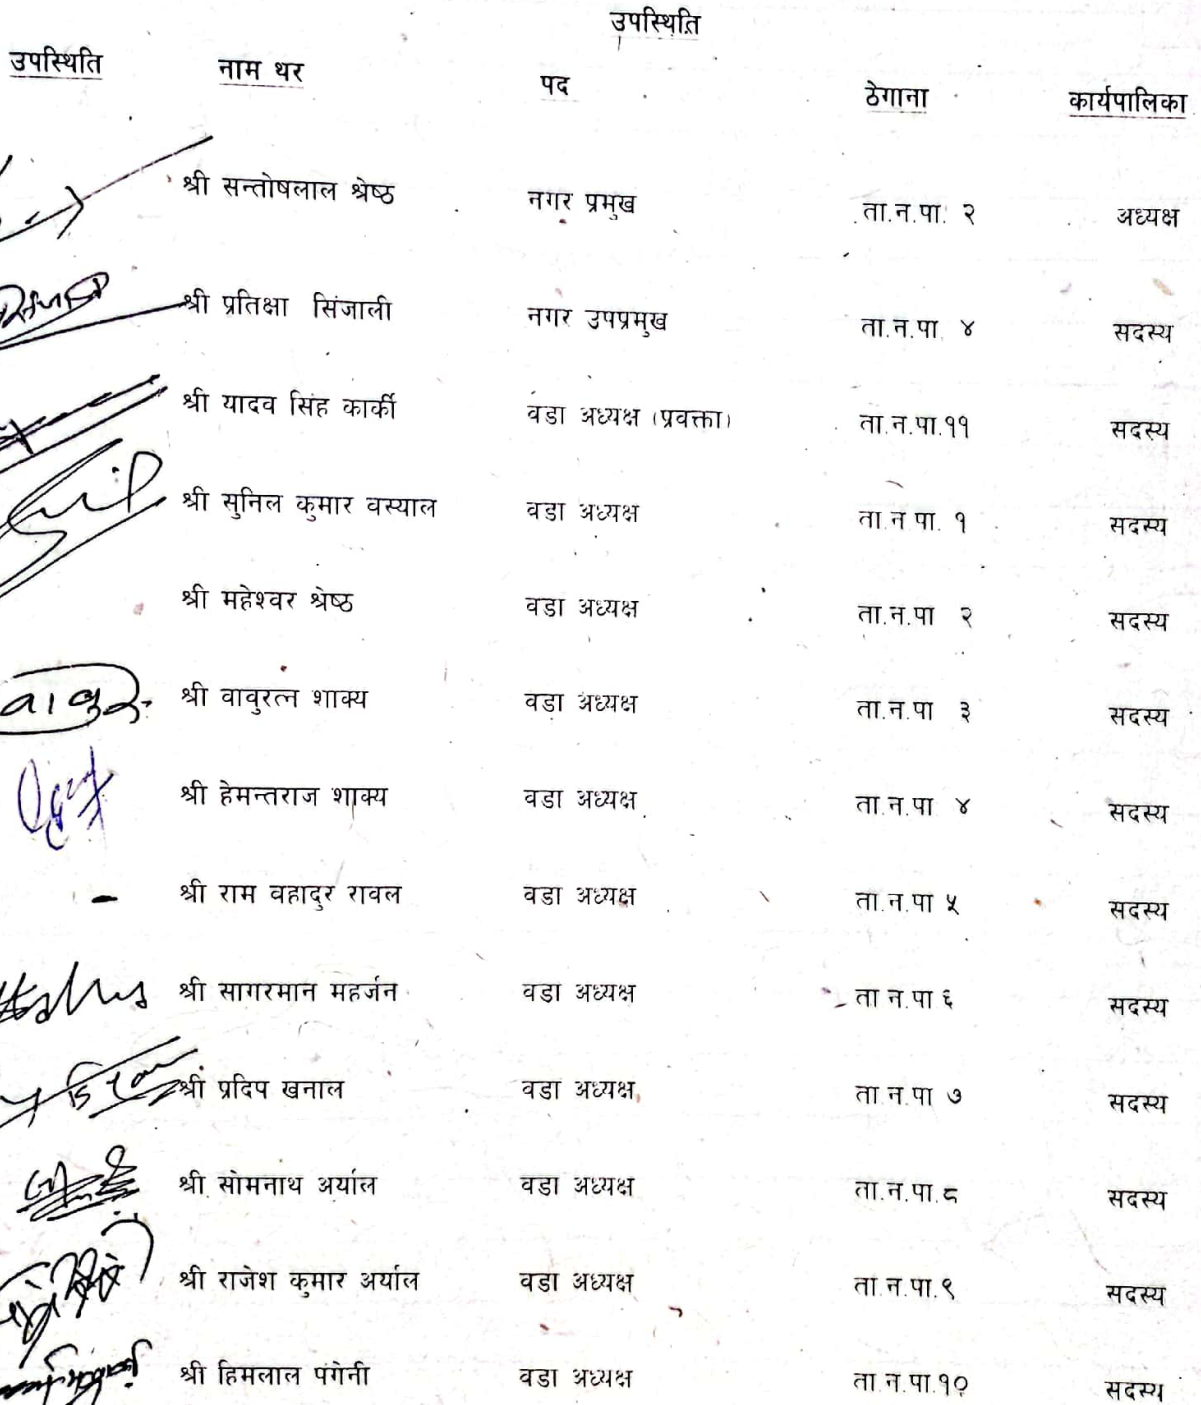 उपस्थिति
उपस्थिति नाम थर पद ठेगाना कार्यपालिका
श्री सन्तोषलाल श्रेष्ठ नगर प्रमुख ता.न.पा. २ अध्यक्ष
श्री प्रतिक्षा सिंजाली नगर उपप्रमुख ता.न.पा. ४ सदस्य
श्री यादव सिंह कार्की वडा अध्यक्ष (प्रवक्ता) ता.न.पा.११ सदस्य
श्री सुनिल कुमार वस्याल वडा अध्यक्ष ता.न.पा. १ सदस्य
श्री महेश्वर श्रेष्ठ वडा अध्यक्ष ता.न.पा २ सदस्य
श्री वावुरत्न शाक्य वडा अध्यक्ष ता.न.पा ३ सदस्य
श्री हेमन्तराज शाक्य वडा अध्यक्ष ता.न.पा ४ सदस्य
- श्री राम वहादुर रावल वडा अध्यक्ष ता.न.पा ५ सदस्य
श्री सागरमान महर्जन वडा अध्यक्ष ता.न.पा ६ सदस्य
श्री प्रदिप खनाल वडा अध्यक्ष ता.न.पा ७ सदस्य
श्री सोमनाथ अर्याल वडा अध्यक्ष ता.न.पा.८ सदस्य
श्री राजेश कुमार अर्याल वडा अध्यक्ष ता.न.पा.९ सदस्य
श्री हिमलाल पंगेनी वडा अध्यक्ष ता.न.पा.१० सदस्य